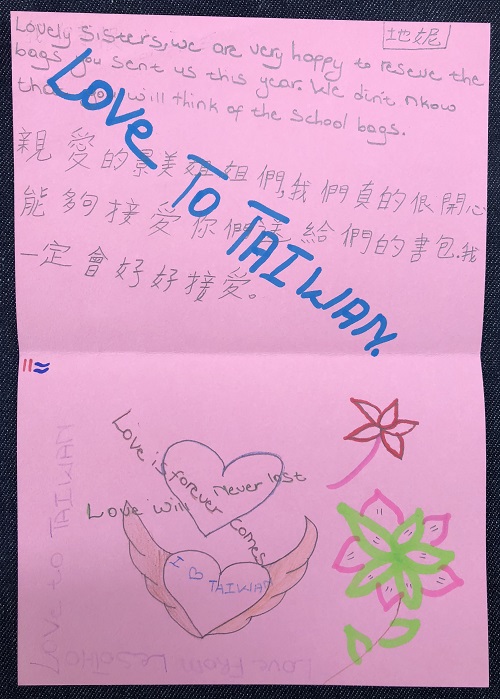 地妮
Lovely Sisters, we are very happy to reseve the
bags you sent us this year. We din't nkow
that you will think of the school bags.
LOVE TO TAIWAN.
親愛的景美姐們,我們真的很開心
能夠接愛你們送給們的書包.我
一定會好好接愛。
Love is forever Never lost
Love will comes
I ♡ TAIWAN
LOVE TO TAIWAN
LOVE FROM LESOTHO